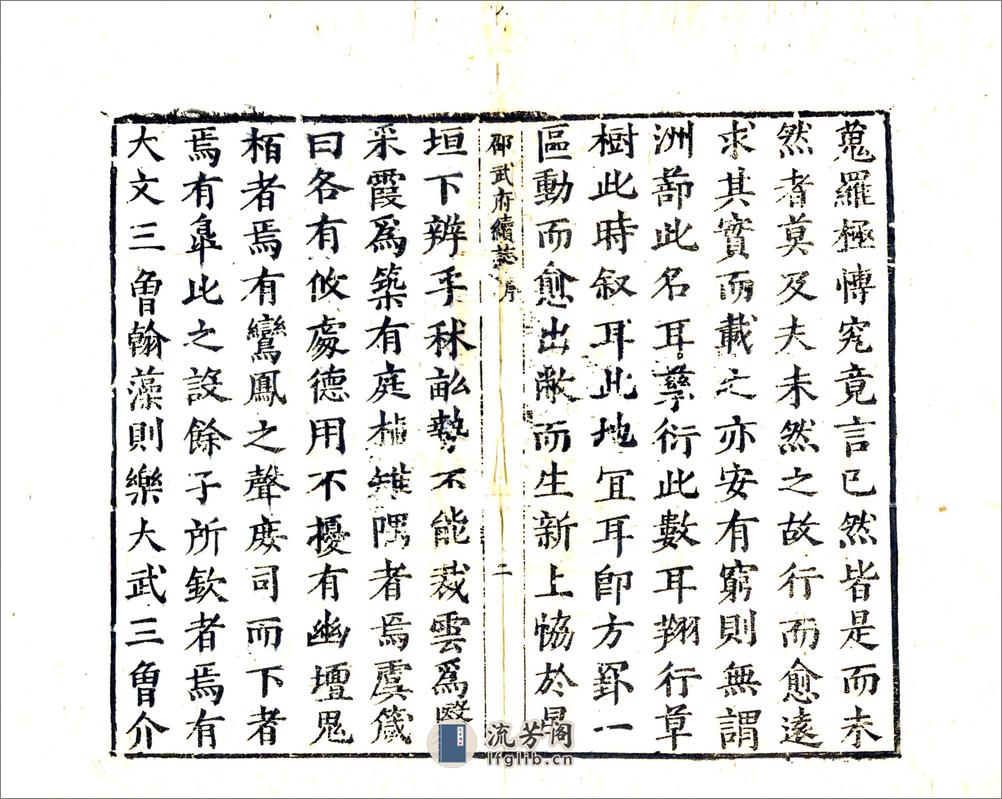 蒐羅極慱究竟言已然皆是而未
然者莫及夫未然之故行而愈遠
求其實而載之亦安有窮則無謂
洲莭此名耳綦衍此數耳翔行草
樹此時叙耳此地宜耳即方罫一
區動而愈出敝而生新上恊於
邵武府續誌 序 二
垣下辨乎秝畝㔟不能裁雲為
采霞為築有庭植雉隅者焉虞箴
曰各有攸處德用不擾有幽壇
栢者焉有鸞鳳之聲庋司而下者
焉有臯比之設餘子所欽者焉有
大文三曾翰藻則樂大武三曾介
流芳阁
lfglib.cn